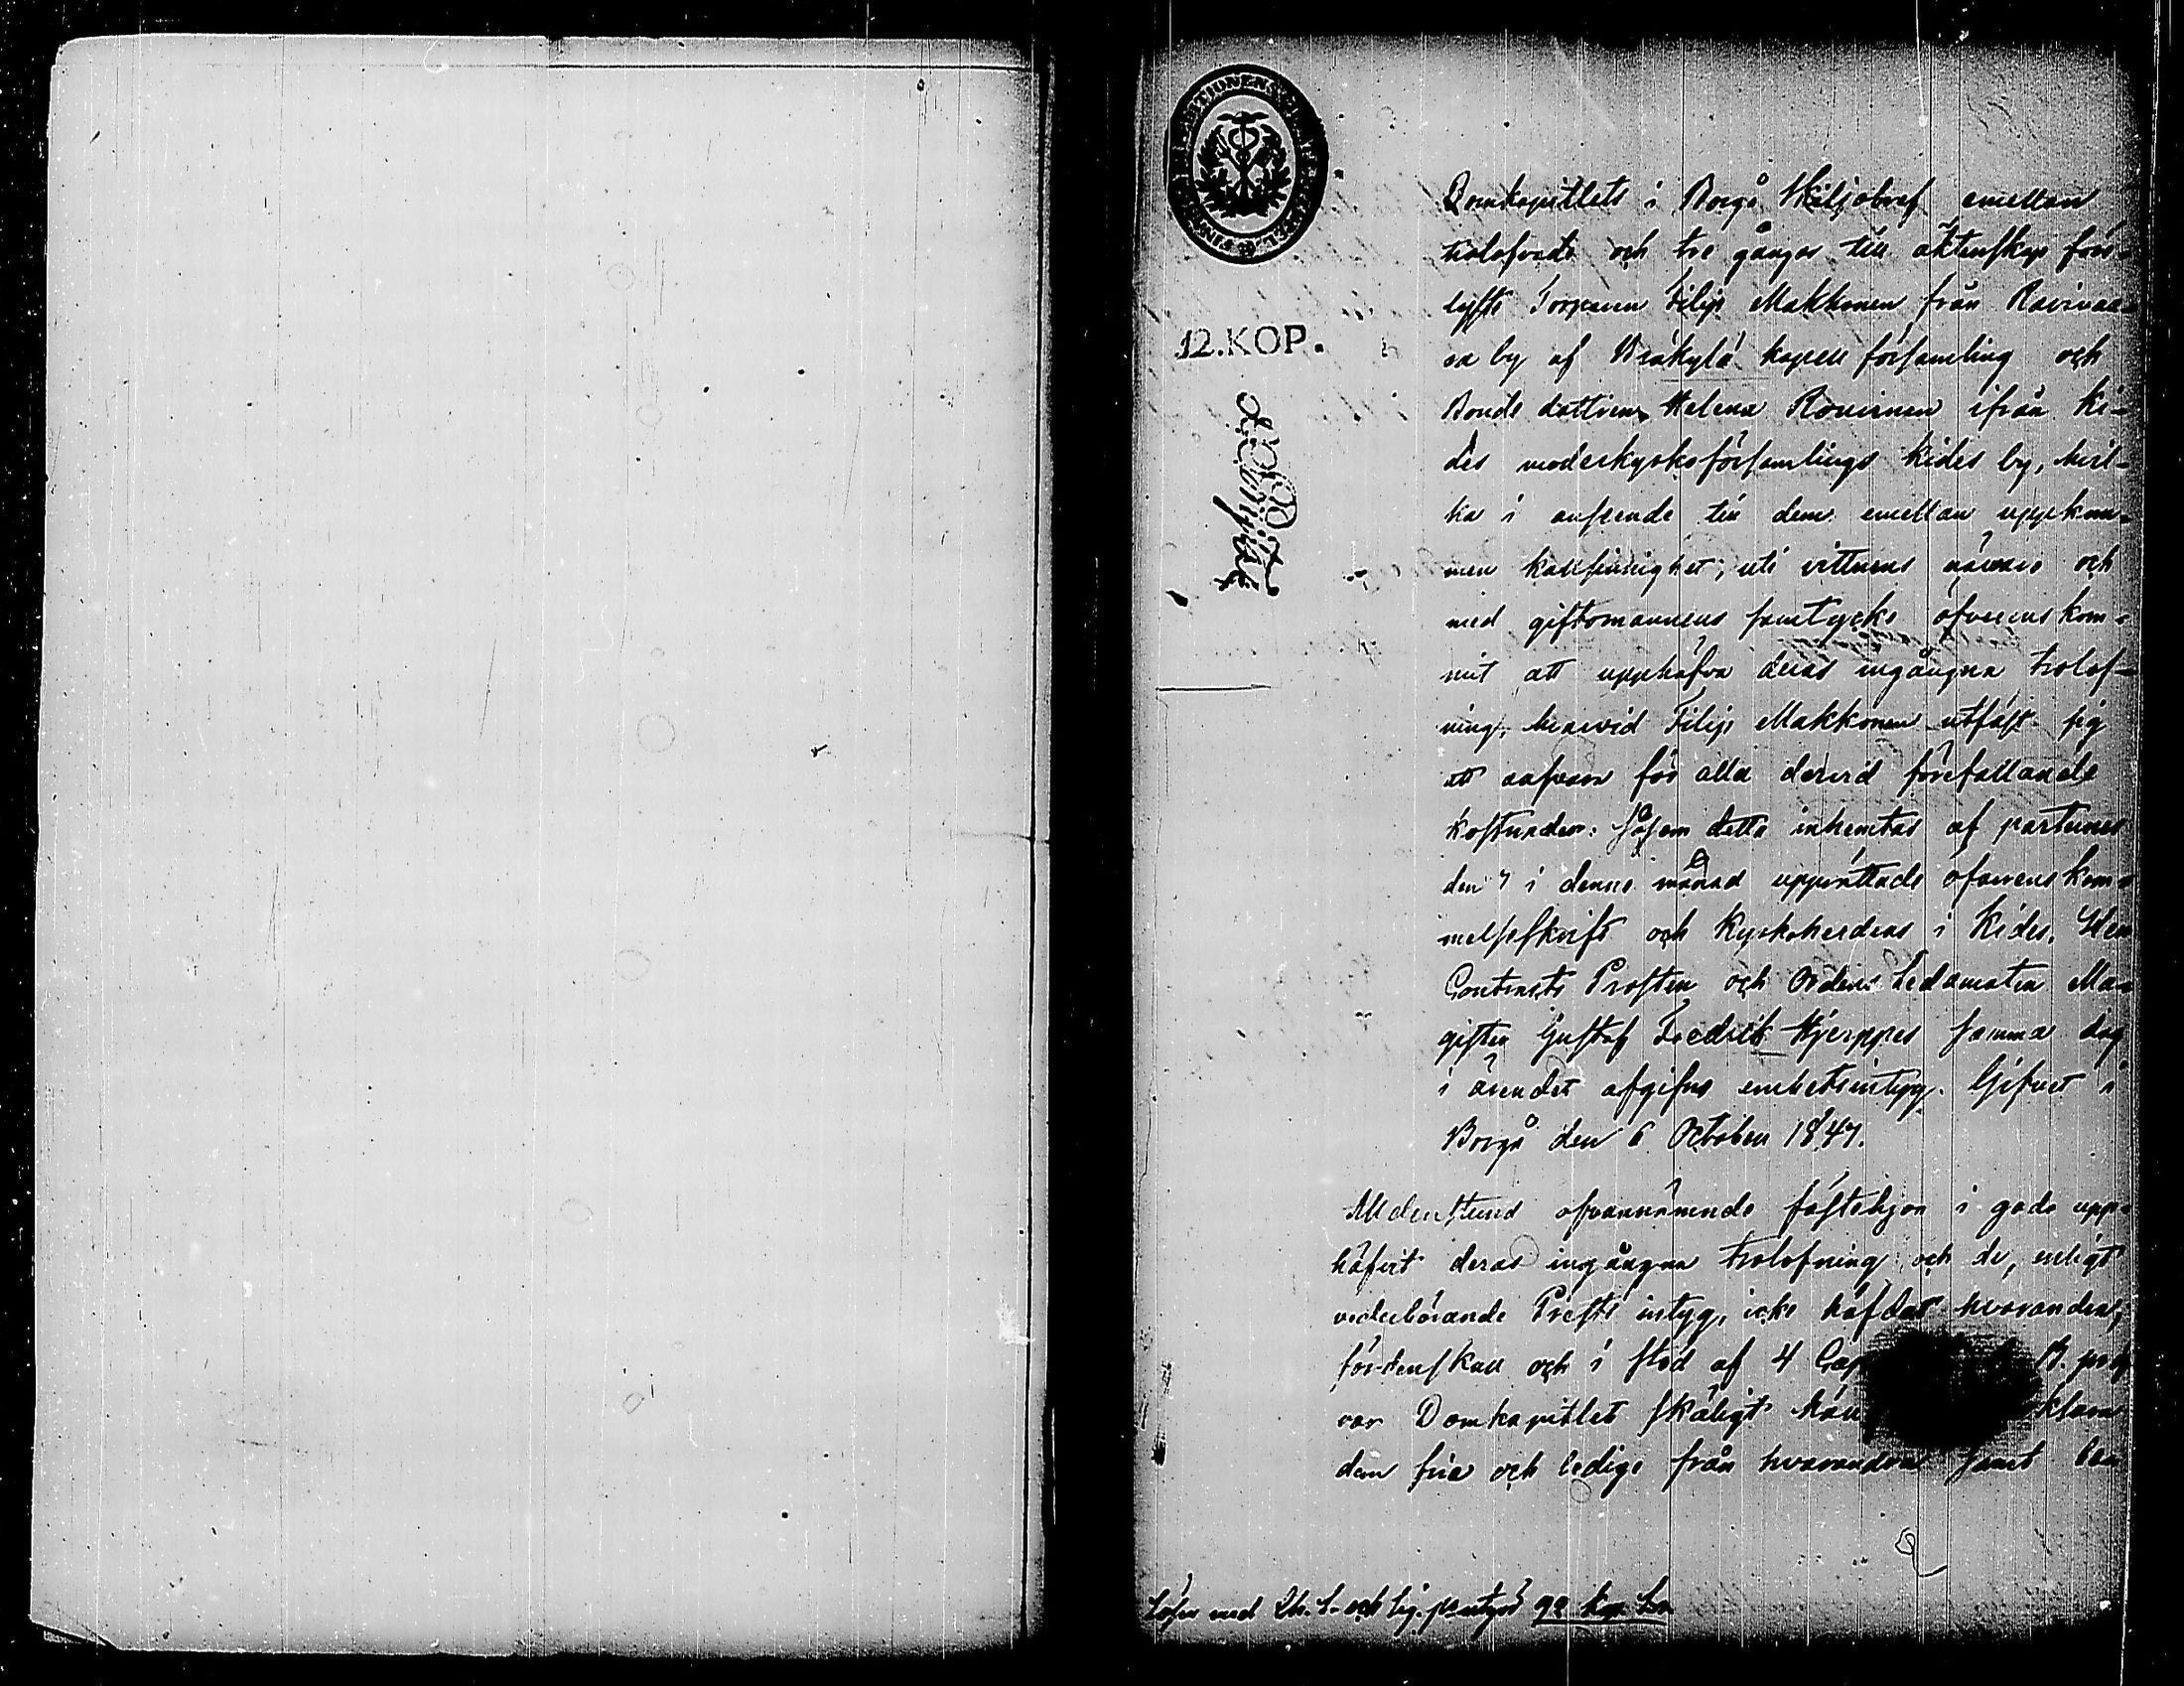 12.KOP.
Domkapitlets i Borgå Skiljobref emellan
trolofvade och tre gånger till äktenskapför-
lyste Torparen Filip Makkonen från
by af Bräkylä kapell församling och
Bonde dottren Helena Rovinen ifrån Ki-
des moderkyrkoförsamlings Kides by, hvil-
ka i anseende till dem emellan uppkom-
men kallsinnighet, uti vittnens närvaro och
med giftomannens samtycke öfverenskom-
mit att upphäfva deras ingångna trolof-
ning, hvarvid Filip Makkonen utfäst sig
att ansvara för alla dervid förefallande
kostnader: såsom detta inhemtas af parternes
den 7 i denne månad upprättade öfverenskom-
melseskrift och Kyrkoherdens i Kides, Herr
Contracts Prosten och Ordens Ledamoten Ma-
gister Gustaf Fredrik Hjerppes samma dag
i ärendet afgifne embetsintyg. Gifvet i
Borgå den 6 October 1847.
Alldenstund ofvannämnde fästehjon i godo upp-
häfvit deras ingångna trolofning och de, enligt
vederbörande Prests intyg, icke häfdat hvarandra,
fördenskull och i stöd af 4 Cap B. prof-
var Domkapitlet skäligt klara
dem fria och lediga från hvarandra samt
Lösen med Ch. S. och 92 kop. S:r